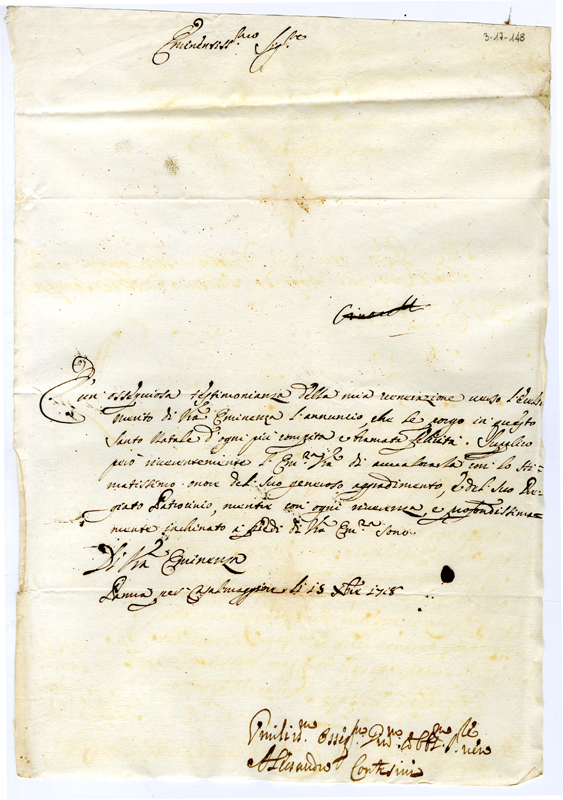 3-17-148
Eminentiss.mo Sig.re
È un ossequiosa testimonianza della mia venerazione verso l'
merito di V.ra Eminenza l'annuncio, che le porgo in questo
Santo Natale d'ogni più compita e bramata felicità. Supplico
però riverentemente l'Em.za V.ra di avvalorarla con lo sti-
matissimo onor del suo generoso aggradimento, e del suo Pre-
giato Patrocinio, mentre con ogni riverenza, e profondissima-
mente inchinato a piedi di V.ra Em.za sono.
Di V.ra Eminenza
Parma per Casalmaggiore li 15 Xbre 1718
Umiliss.mo Osseq.mo
Alessandro Contesini